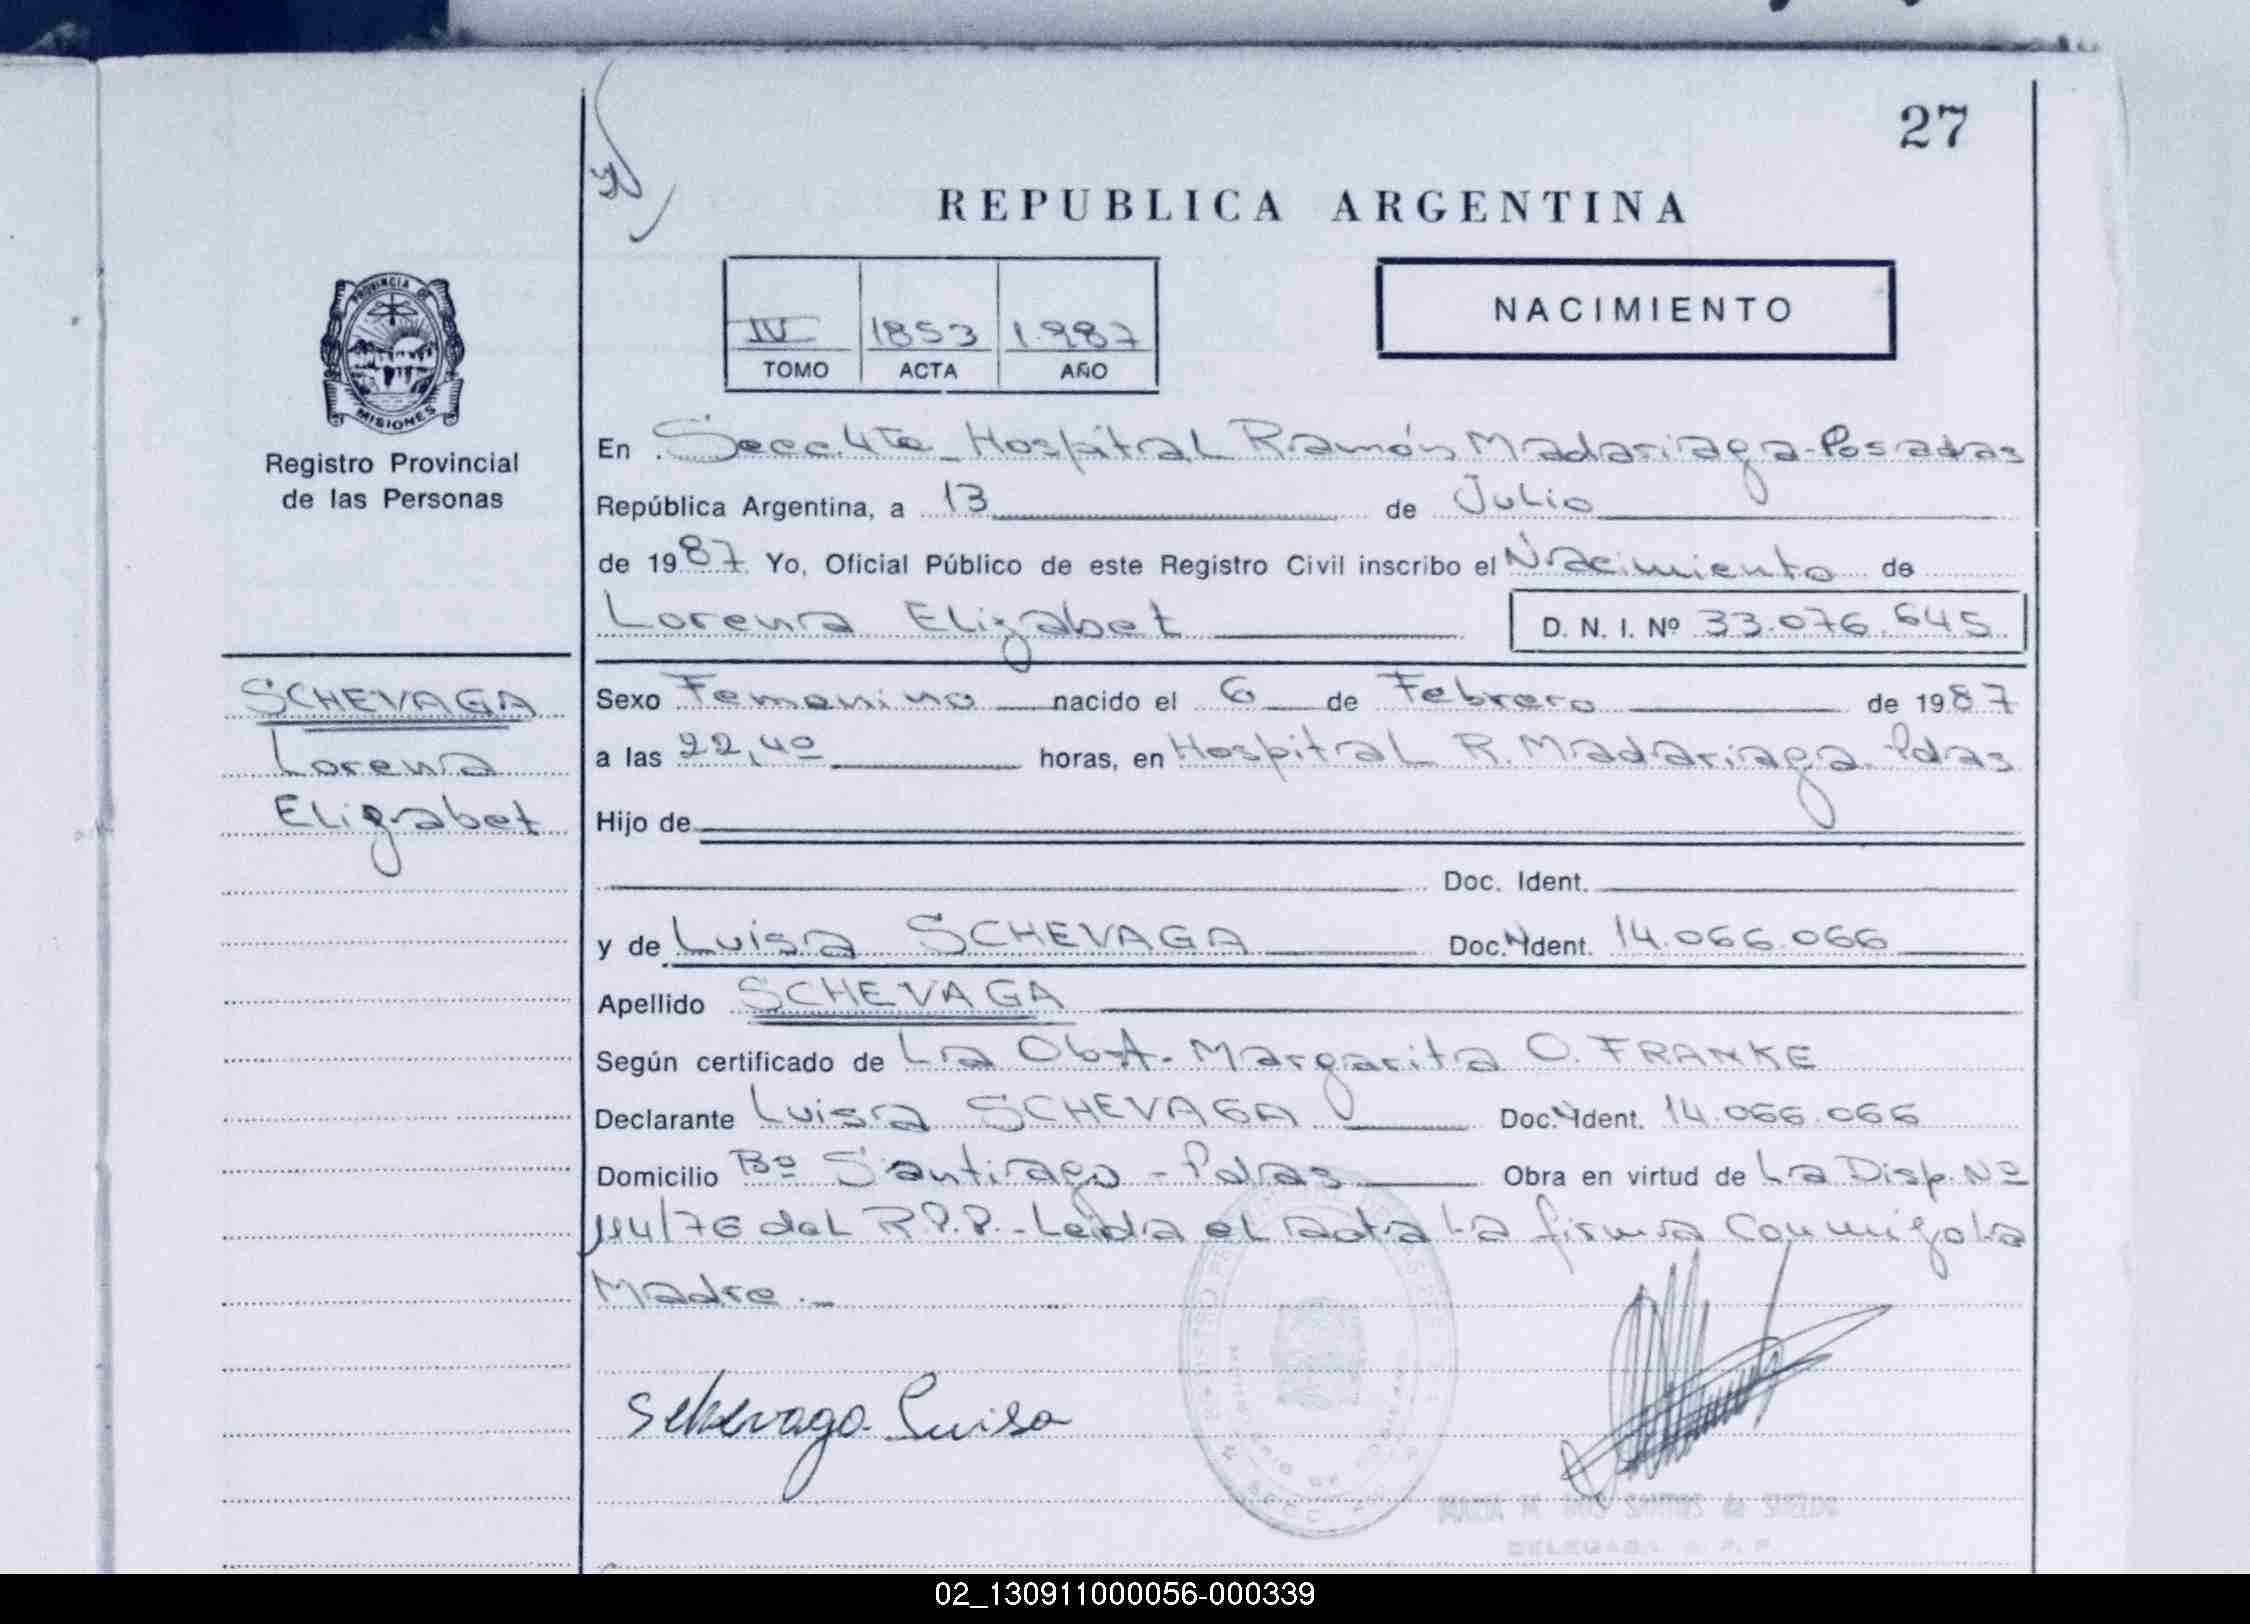 27
REPUBLICA ARGENTINA
IV 1853 1.987
TOMO ACTA AÑO
NACIMIENTO
PROVINCIA DE
MISIONES
Registro Provincial
de las Personas
SCHEVAGA
Lorena
Elizabet
En Secc. 4ta - Hospital Ramón Madariaga - Posadas
República Argentina, a 13 de Julio
de 1987 Yo, Oficial Público de este Registro Civil inscribo el Nacimiento de
Lorena Elizabet D. N. I. Nº 33.076.645
Sexo Femenino nacido el 6 de Febrero de 1987
a las 22,40 horas, en Hospital R. Madariaga - Pdas
Hijo de
Doc. Ident.
y de Luisa SCHEVAGA Doc. Ident. 14.066.066
Apellido SCHEVAGA
Según certificado de La Obst. Margarita O. FRANKE
Declarante Luisa SCHEVAGA Doc. Ident. 14.066.066
Domicilio Bº Santiago - Pdas Obra en virtud de La Disp. Nº
114/76 del R.P.P. - Leída el acta la firma conmigo la
Madre. -
Schevaga Luisa
DOS SANTOS de
DELEGADA R. P. P.
02_130911000056-000339